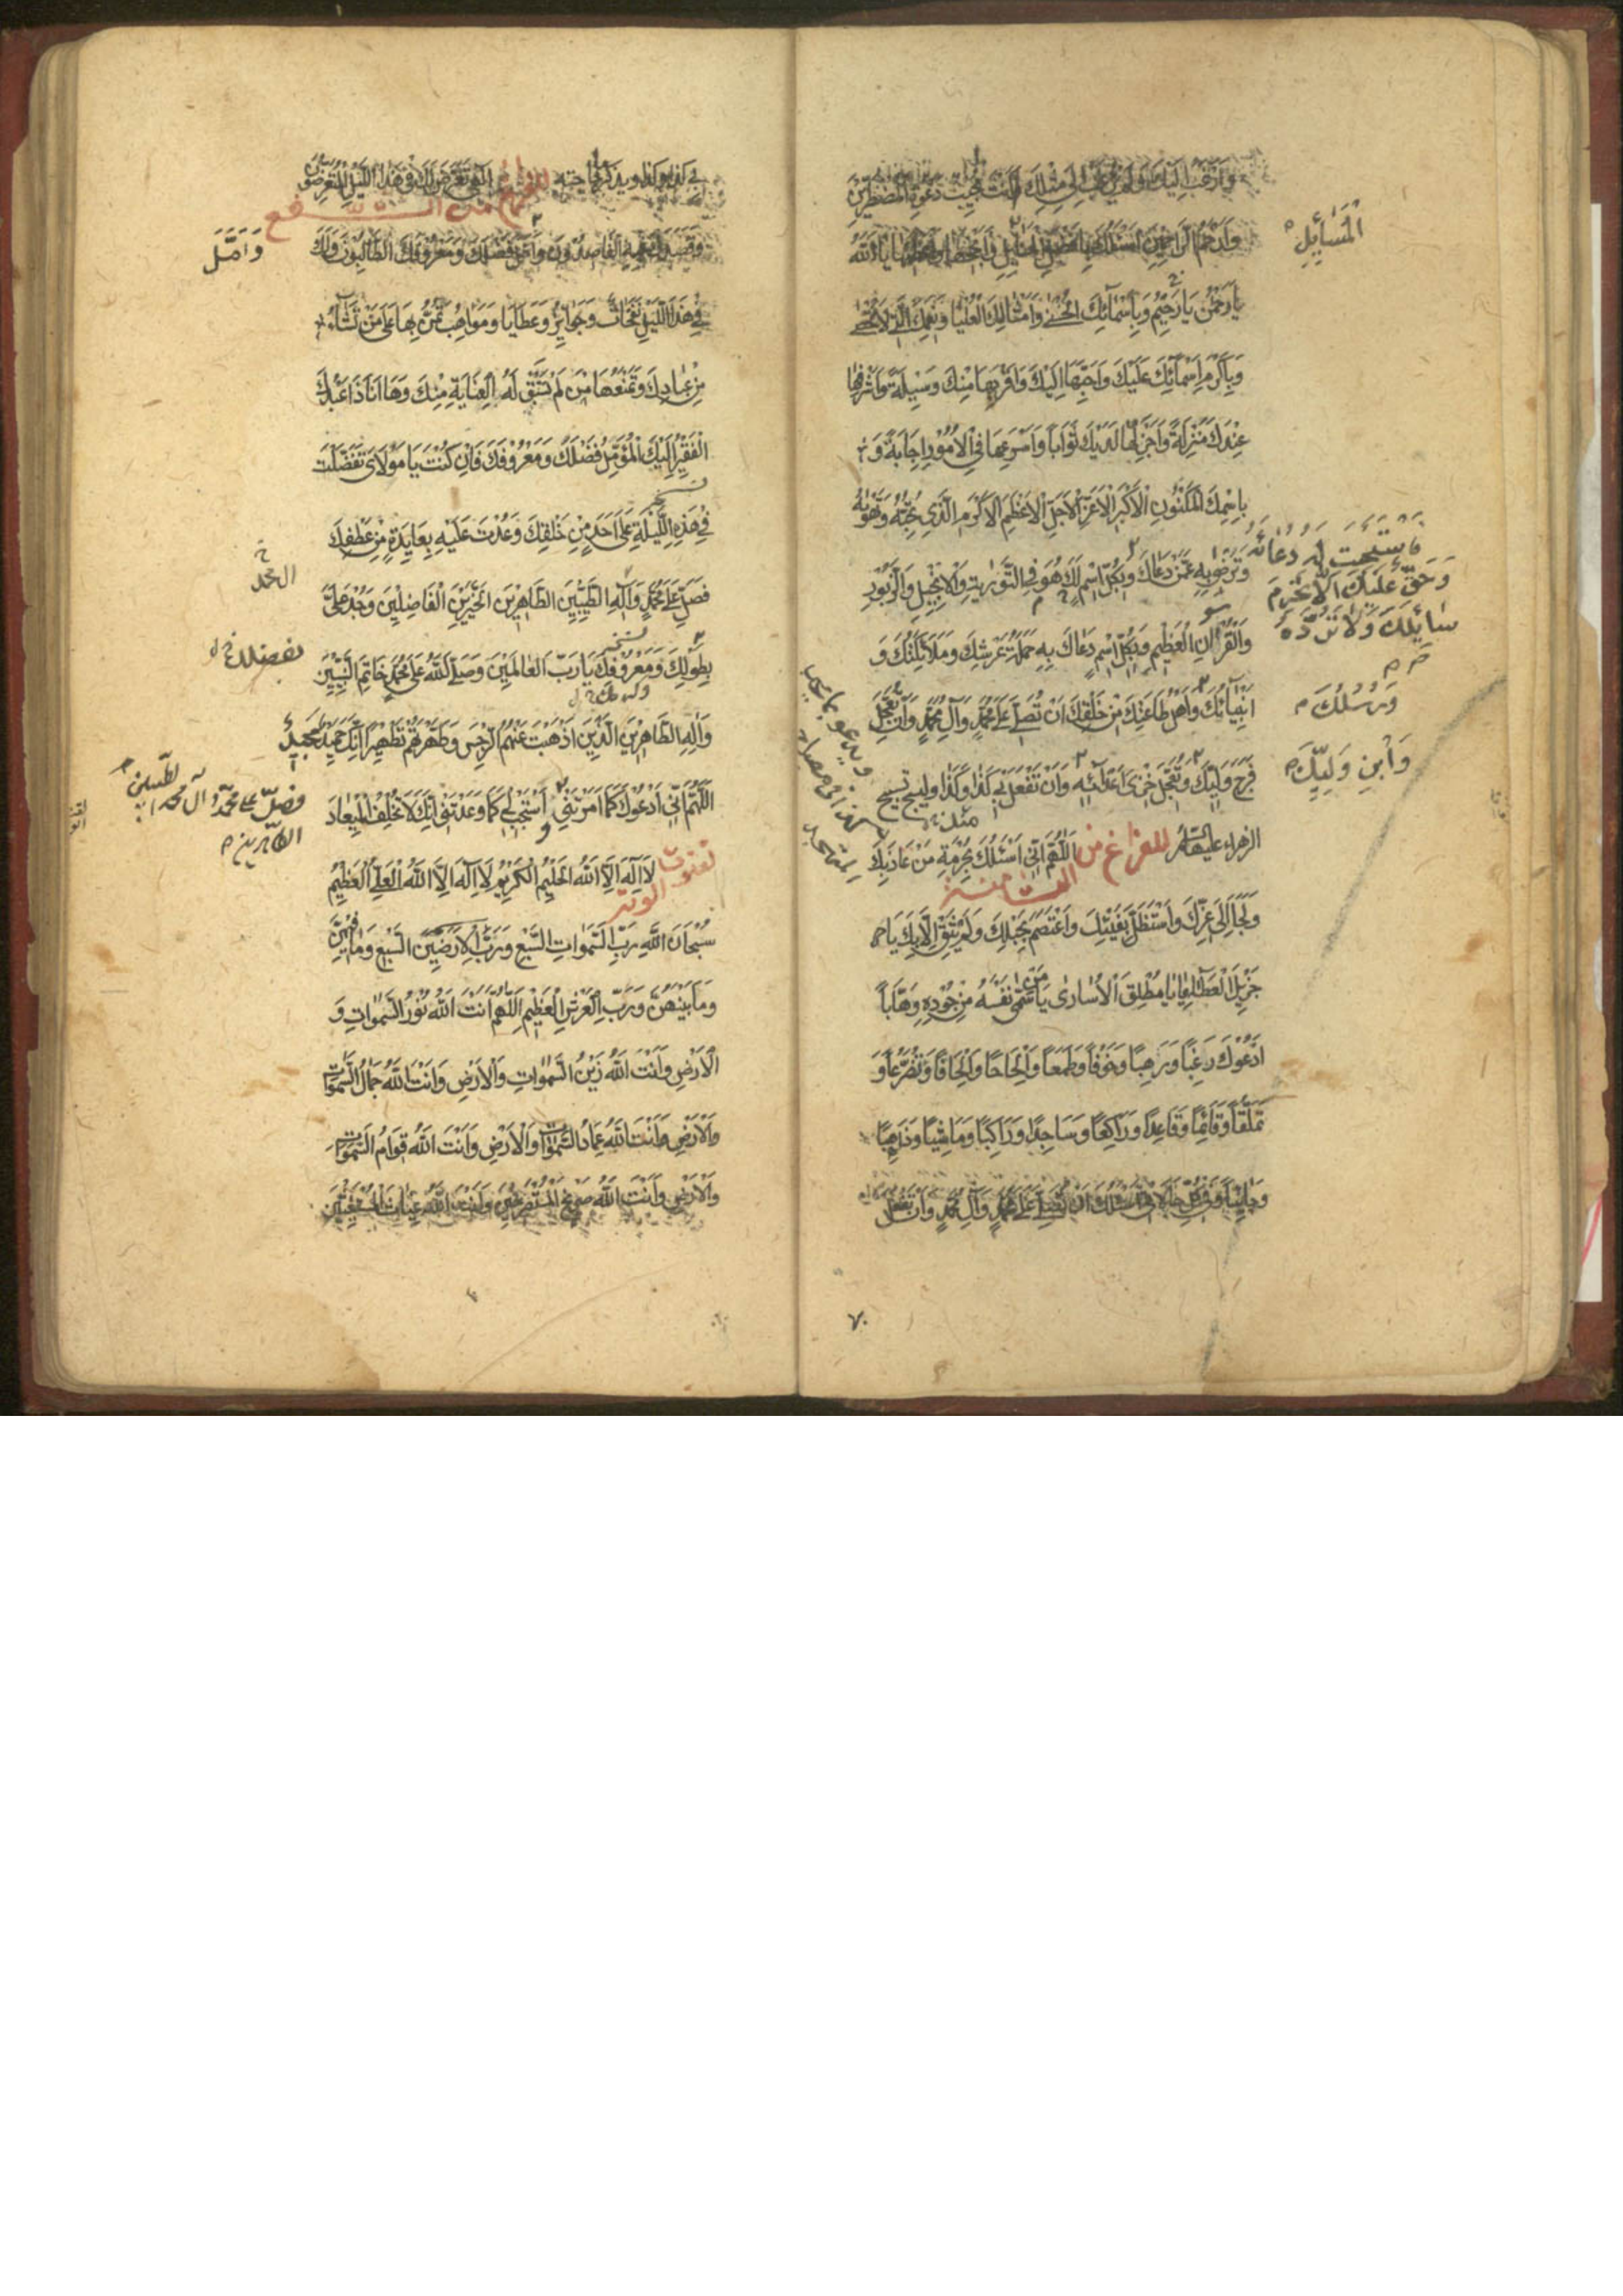 وَاَرْغَبُ اِلَيْكَ وَلَمْ يُرْغَبْ اِلىٰ مِثْلِكَ اَنْتَ مُجِيبُ دَعْوَةِ الْمُضْطَرِّينَ
وَاَرْحَمُ الرَّاحِمِينَ اَسْئَلُكَ بِاَفْضَلِ الْمَسَائِلِ وَاَنْجَحِهَا وَاَعْظَمِهَا يَا اَللّٰهُ
الْمَسٰائِلِ
يَا رَحْمٰنُ يَا رَحِيمُ وَبِاَسْمَائِكَ الْحُسْنىٰ وَاَمْثَالِكَ الْعُلْيَا وَنِعَمِكَ الَّتِي لَا تُحْصىٰ
وَبِاَكْرَمِ اَسْمَائِكَ عَلَيْكَ وَاَحَبِّهَا اِلَيْكَ وَاَقْرَبِهَا مِنْكَ وَسِيلَةً وَاَشْرَفِهَا
عِنْدَكَ مَنْزِلَةً وَاَجْزَلِهَا لَدَيْكَ ثَوَاباً وَاَسْرَعِهَا فِي الْاُمُورِ اِجَابَةً وَ
بِاسْمِكَ الْمَكْنُونِ الْاَكْبَرِ الْاَعَزِّ الْاَجَلِّ الْاَعْظَمِ الْاَكْرَمِ الَّذِي تُحِبُّهُ وَتَهْوٰاهُ
وَتَرْضىٰ بِهِ عَمَّنْ دَعَاكَ وَبِكُلِّ اسْمٍ لَكَ هُوَ فِي التَّوْرٰيةِ وَالْاِنْجِيلِ وَالزَّبُورِ
فَاسْتَجَبْتَ لَهُ دُعَائَهُ
وَحَقٌّ عَلَيْكَ اَلَّا تَحْرِمَ
سَائِلَكَ وَلَا تَرُدَّهُ
وَالْقُرْآنِ الْعَظِيمِ وَبِكُلِّ اسْمٍ دَعَاكَ بِهِ حَمَلَةُ عَرْشِكَ وَمَلَائِكَتُكَ وَ
اَنْبِيَائُكَ وَاَهْلُ طَاعَتِكَ مِنْ خَلْقِكَ اَنْ تُصَلِّيَ عَلىٰ مُحَمَّدٍ وَآلِ مُحَمَّدٍ وَاَنْ تُعَجِّلَ
وَرُسُلُكَ
فَرَجَ وَلِيِّكَ وَتُعَجِّلَ خِزْيَ اَعْدَائِهِ وَاَنْ تَفْعَلَ بِي كَذَا وَكَذَا وليسبح تسبيح
وَابْنِ وَلِيِّكَ
الزهراء عليها السلام للفراغ من الثامنة اَللّٰهُمَّ اِنِّي اَسْئَلُكَ بِحُرْمَةِ مَنْ عَاذَ بِكَ
وَلَجَاَ اِلىٰ عِزِّكَ وَاسْتَظَلَّ بِفَيْئِكَ وَاعْتَصَمَ بِحَبْلِكَ وَلَمْ يَثِقْ اِلَّا بِكَ يَا
جَزِيلَ الْعَطَايَا يَا مُطْلِقَ الْاُسَارىٰ يَا مَنْ سَمّىٰ نَفْسَهُ مِنْ جُودِهِ وَهَّاباً
اَدْعُوكَ رَغَباً وَرَهَباً وَخَوْفاً وَطَمَعاً وَاِلْحَاحاً وَاِلْحَافاً وَتَضَرُّعاً وَ
تَمَلُّقاً وَقَائِماً وَقَاعِداً وَرَاكِعاً وَسَاجِداً وَرَاكِباً وَمَاشِياً وَذَاهِباً
وَجَائِياً وَفِي كُلِّ حَالَاتِي اَسْئَلُكَ اَنْ تُصَلِّيَ عَلىٰ مُحَمَّدٍ وَآلِ مُحَمَّدٍ وَاَنْ تَفْعَلَ
٧٠
بِي كَذَا وَكَذَا ويذكر حاجته للفراغ من الشفع اِلٰهِي تَعَرَّضَ لَكَ فِي هٰذَا اللَّيْلِ الْمُتَعَرِّضُونَ
وَقَصَدَكَ فِيهِ الْقَاصِدُونَ وَاَمَّلَ فَضْلَكَ وَمَعْرُوفَكَ الطَّالِبُونَ وَلَكَ
وَاَمَّلَ
فِي هٰذَا اللَّيْلِ نَفَحَاتٌ وَجَوَائِزُ وَعَطَايَا وَمَوَاهِبُ تَمُنُّ بِهَا عَلىٰ مَنْ تَشَاءُ
مِنْ عِبَادِكَ وَتَمْنَعُهَا مَنْ لَمْ تَسْبِقْ لَهُ الْعِنَايَةُ مِنْكَ وَهَا اَنَا ذَا عَبْدُكَ
الْفَقِيرُ اِلَيْكَ الْمُؤَمِّلُ فَضْلَكَ وَمَعْرُوفَكَ فَاِنْ كُنْتَ يَا مَوْلَايَ تَفَضَّلْتَ
فِي هٰذِهِ اللَّيْلَةِ عَلىٰ اَحَدٍ مِنْ خَلْقِكَ وَعُدْتَ عَلَيْهِ بِعَائِدَةٍ مِنْ عَطْفِكَ
فَصَلِّ عَلىٰ مُحَمَّدٍ وَآلِهِ الطَّيِّبِينَ الطَّاهِرِينَ الْخَيِّرِينَ الْفَاضِلِينَ وَجُدْ عَلَيَّ
بِطَوْلِكَ وَمَعْرُوفِكَ يَا رَبَّ الْعَالَمِينَ وَصَلَّى اللّٰهُ عَلىٰ مُحَمَّدٍ خَاتَمِ النَّبِيِّينَ
بفضلك
وَآلِهِ الطَّاهِرِينَ الَّذِينَ اَذْهَبْتَ عَنْهُمُ الرِّجْسَ وَطَهَّرْتَهُمْ تَطْهِيراً اِنَّكَ حَمِيدٌ مَجِيدٌ
اَللّٰهُمَّ اِنِّي اَدْعُوكَ كَمَا اَمَرْتَنِي اسْتَجِبْ لِي كَمَا وَعَدْتَنِي اِنَّكَ لَا تُخْلِفُ الْمِيعَادَ
وصلّ على محمّد وآل محمد الطيبين
الطاهرين
لقنوت الوتر لَا اِلٰهَ اِلَّا اللّٰهُ الْحَلِيمُ الْكَرِيمُ لَا اِلٰهَ اِلَّا اللّٰهُ الْعَلِيُّ الْعَظِيمُ
سُبْحَانَ اللّٰهِ رَبِّ السَّمٰوَاتِ السَّبْعِ وَرَبِّ الْاَرَضِينَ السَّبْعِ وَمَا فِيهِنَّ
وَمَا بَيْنَهُنَّ وَرَبِّ الْعَرْشِ الْعَظِيمِ اَللّٰهُمَّ اَنْتَ اللّٰهُ نُورُ السَّمٰوَاتِ وَ
الْاَرْضِ وَاَنْتَ اللّٰهُ زَيْنُ السَّمٰوَاتِ وَالْاَرْضِ وَاَنْتَ اللّٰهُ جَمَالُ السَّمٰوَاتِ
وَالْاَرْضِ وَاَنْتَ اللّٰهُ عِمَادُ السَّمٰوَاتِ وَالْاَرْضِ وَاَنْتَ اللّٰهُ قِوَامُ السَّمٰوَاتِ
وَالْاَرْضِ وَاَنْتَ اللّٰهُ صَرِيخُ الْمُسْتَصْرِخِينَ وَاَنْتَ اللّٰهُ غِيَاثُ الْمُسْتَغِيثِينَ